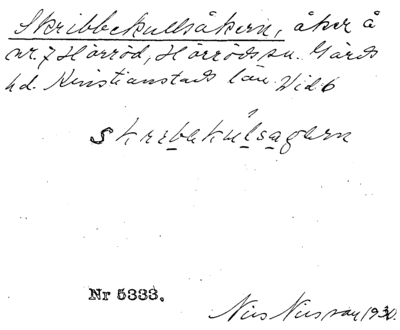 Skribbekullsåkern, åker å
nr. 7 Hörröd, Hörröds sn. Gärds
hd. Kristianstads län. Wid. 6
skribekúlsagarn
Nr 5333.
Nils Nilsson 1930.